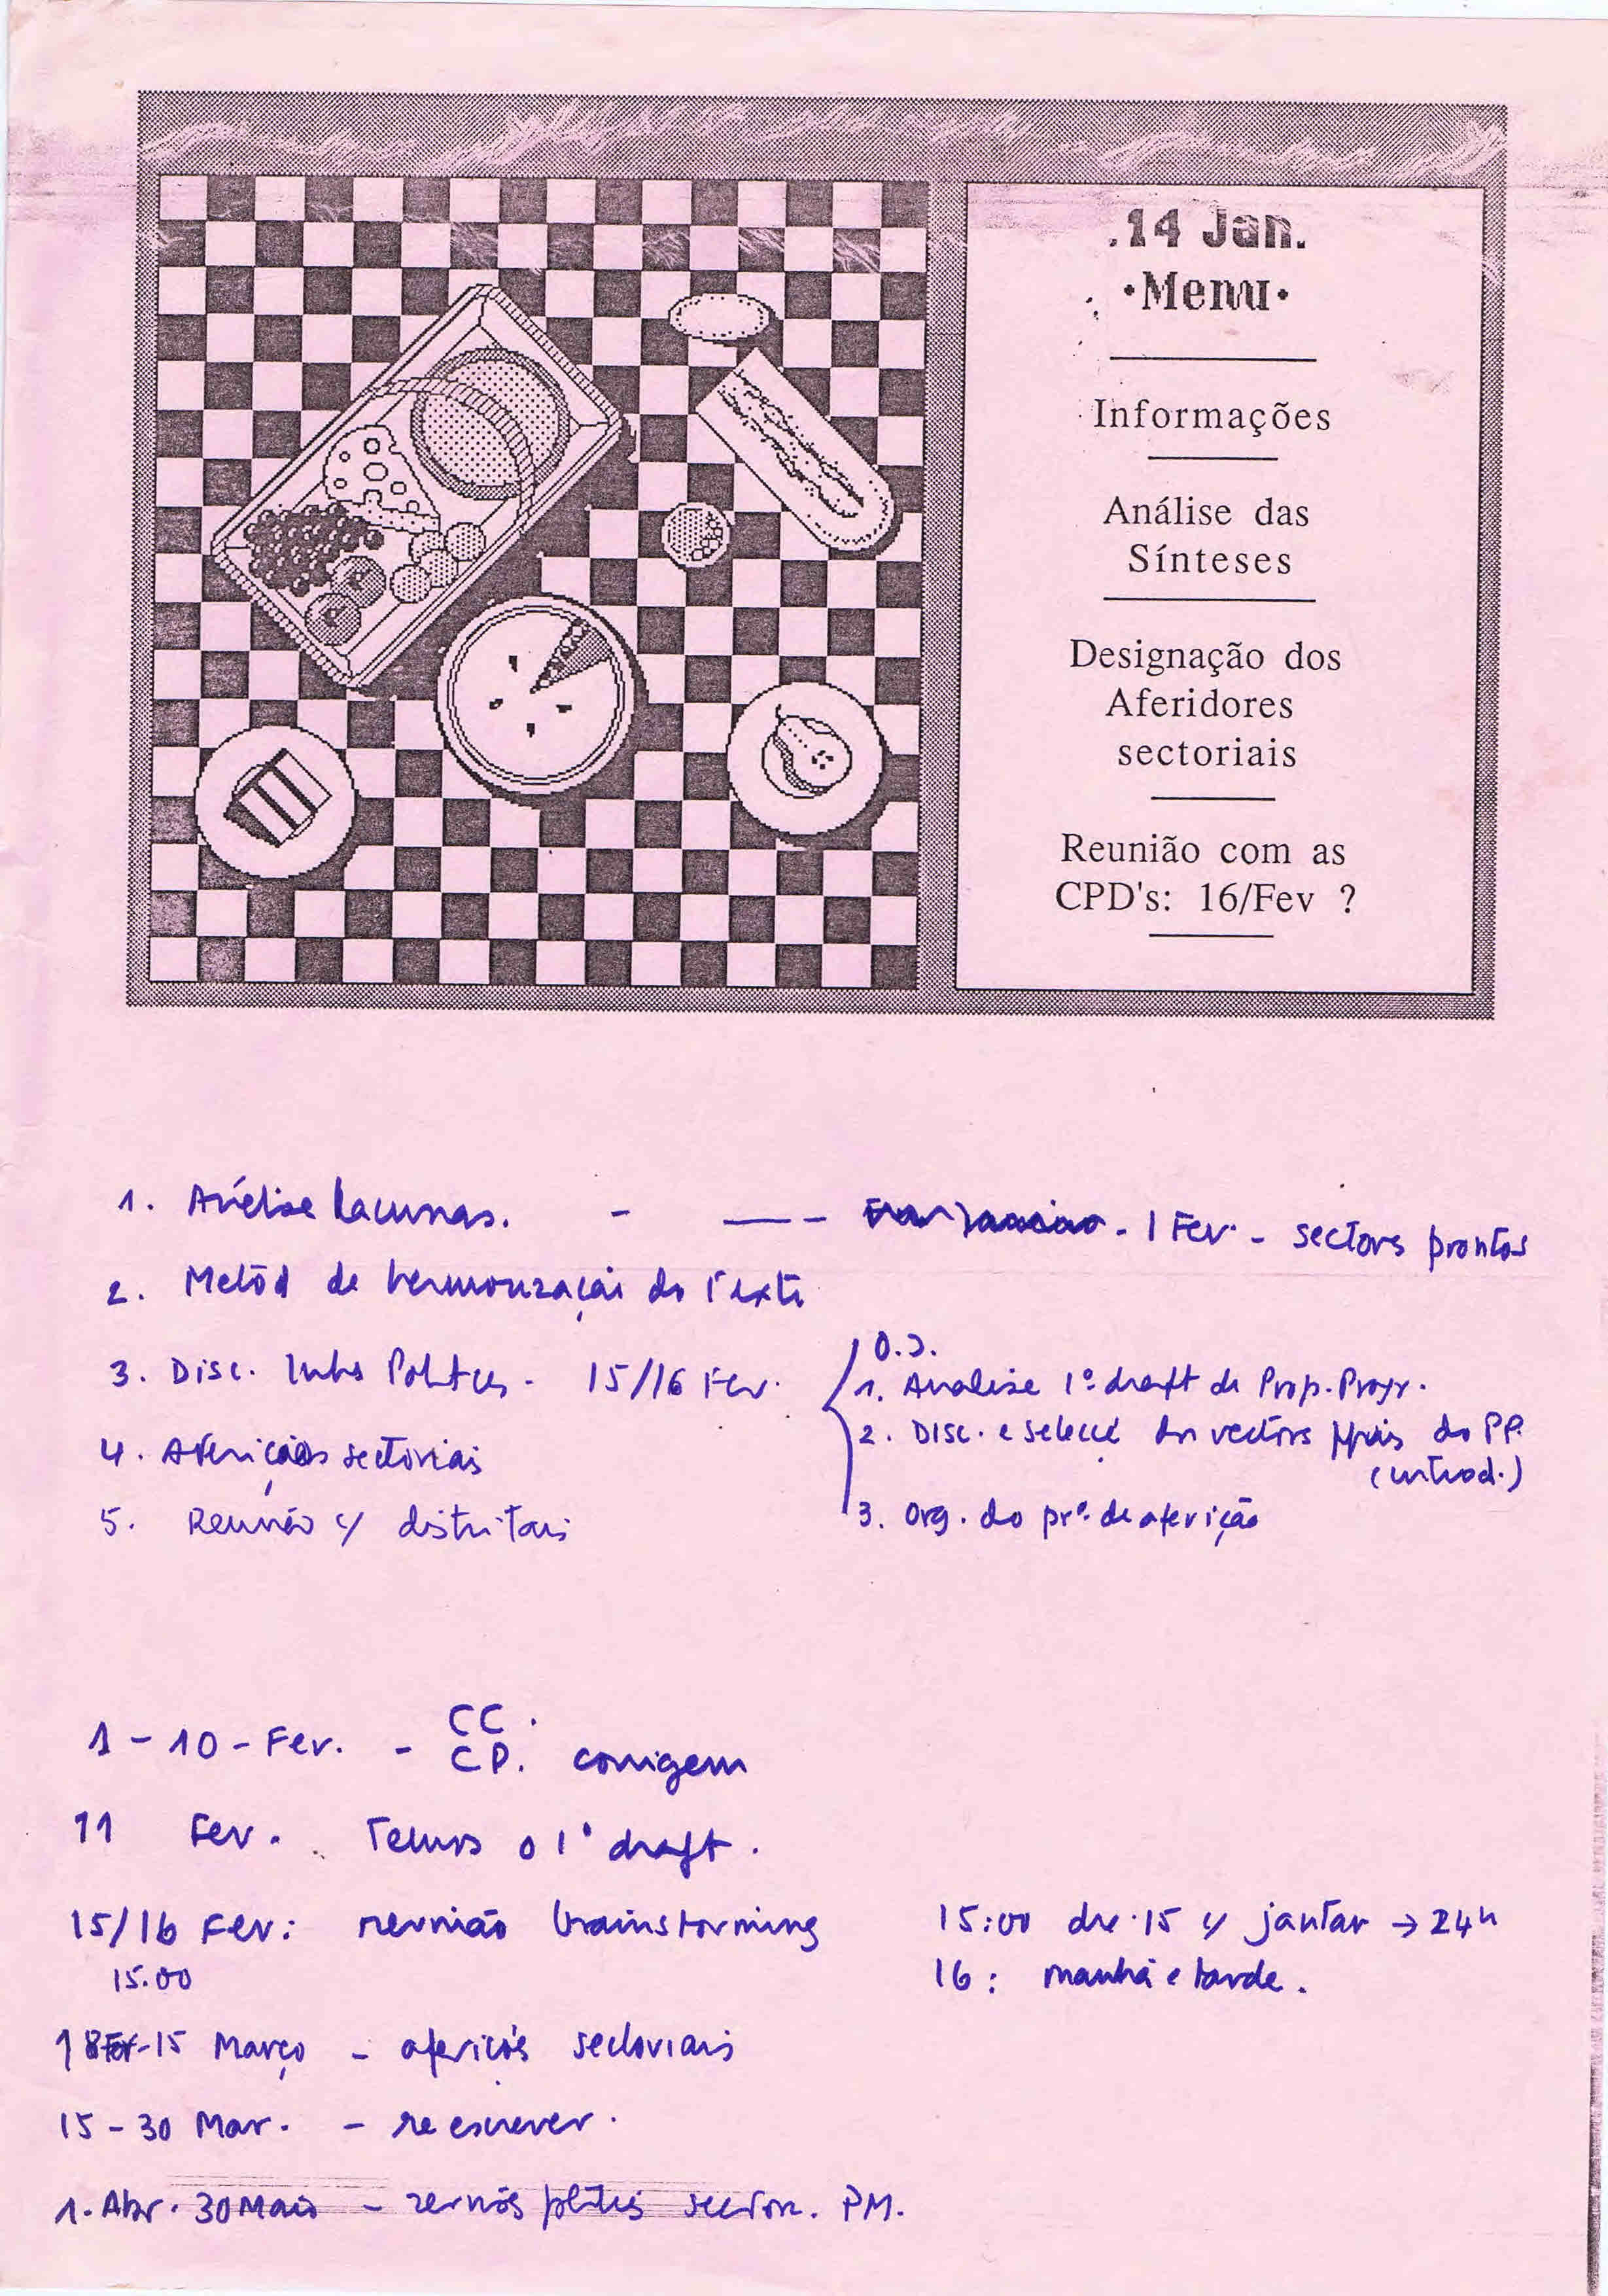 .14 Jan.
•Menu•
Informações
Análise das
Sínteses
Designação dos
Aferidores
sectoriais
Reunião com as
CPD's: 16/Fev ?
1. Análise Lacunas. - —— - 1 Fev. - sectors prontos
2. Metód de harmonização do Texto
3. Disc. Polítcs. - 15/16 Fev.
4. Aferições sectoriais
5. Reunião c/ distritais
O.J.
1. Analise 1º draft de Prop. Progr.
2. Disc. e selecç dos vectors do PP.
(introd.)
3. Org. do prº. de aferição
1 - 10 - Fev. - CC.
CP. corrigem
11 Fev. Temos o 1º draft.
15/16 Fev: reunião brainstorming
15.00
15:00 15 c/ jantar → 24h
16: manhã e tarde.
18 Fev-15 Março - aferiçõs sectoriais
15 - 30 Mar. - re escrever.
1. Abr. 30 Maio - sector. PM.